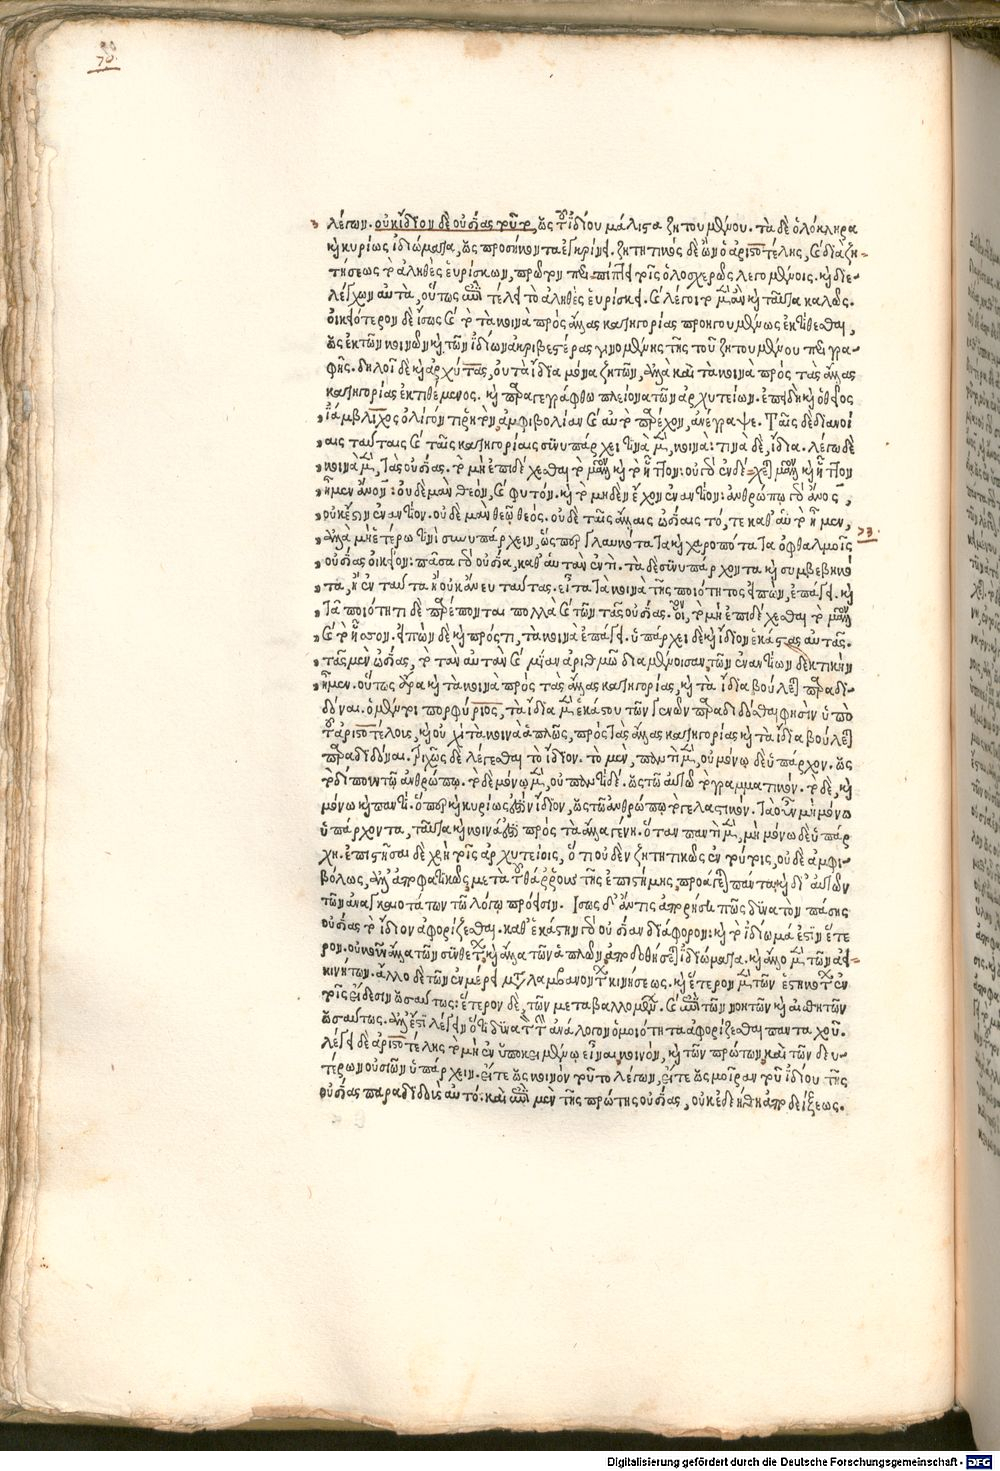 λέγων. οὐκ ἴδιον δὲ οὐσίας τοῦτο, ὡς τοῦ ἰδίου μάλιστα ζητουμένου. τὰ δὲ ὁλόκληρα
καὶ κυρίως ἰδιώματα, ὡς προσήκοντα ἐγκρίνει. ζητητικὸς δὲ ὢν ὁ ἀριστοτέλης, καὶ διὰ ζη-
τήσεως τὸ ἀληθὲς εὑρίσκων, πρῶτον περιπίπτει τοῖς ὁλοσχερῶς λεγομένοις. καὶ διε-
λέγχων αὐτὰ, οὕτως ἐπὶ τέλει τὸ ἀληθὲς εὑρίσκει. καὶ λέγοιτο μὲν ἂν καὶ ταῦτα καλῶς.
οἰκειότερον δὲ ἴσως καὶ τὸ τὰ κοινὰ πρὸς ἄλλας κατηγορίας προηγουμένως ἐκτίθεσθαι,
ὡς ἐκ τῶν κοινῶν καὶ τῶν ἰδίων ἀκριβεστέρας γινομένης τῆς τοῦ ζητουμένου περιγρα-
φῆς. δηλοῖ δὲ καὶ ἀρχύτας, οὐ τὰ ἴδια μόνα ζητῶν, ἀλλὰ καὶ τὰ κοινὰ πρὸς τὰς ἄλλας
κατηγορίας ἐκτιθέμενος. καὶ παραγεγράφθω πλείονα τῶν ἀρχυτείων. ἐπειδὴ καὶ ὁ θεῖος
ἰάμβλιχος ὀλίγον τι πρὸς τὴν ἀμφιβολίαν καὶ αὐτὸ παρέχον, ἀνέγραψε. Ταῖς δὲ διανοί
αις ταύταις καὶ ταῖς κατηγορίαις συνυπάρχει τινὰ μὲν, κοινὰ: τινὰ δὲ, ἴδια. λέγω δὲ
κοινὰ μὲν, τᾶς οὐσίας. τὸ μὴ ἐπιδέχεσθαι τὸ μᾶλλον καὶ τὸ ἧττον: οὐ γὰρ ἐνδέχεται μᾶλλον καὶ ἧττον
ἦμεν ἄνθρωπον: οὐδὲ μὰν θεὸν, καὶ φυτόν. καὶ τὸ μηδὲν ἔχον ἐναντίον: ἀνθρώπῳ γὰρ ἄνθρωπος,
οὐκ ἔστιν ἐναντίον. οὐδὲ μὰν θεῷ θεός. οὐδὲ ταῖς ἄλλαις ὠσίαις τό, τε καθ' αὑτὸ ἦμεν,
ἀλλὰ μὴ ἑτέρω τινί συνυπάρχειν, ὥσπερ γλαυκότατα καὶ χαροπότατα ὀφθαλμοῖς
οὐσίας οἰκεῖον: πᾶσα γὰρ οὐσία, καθ' αὑτάν ἐντὶ. τὰ δὲ συνυπάρχοντα καὶ συμβεβηκό
τα, ἢ ἐν ταύτα ἢ οὐκ ἄνευ ταύτας. εἶτα τὰ κοινὰ τῆς ποιότητος εἰπὼν, ἐπάγει. καὶ
τᾶ ποιότητι δὲ παρέπονται πολλὰ καὶ τῶν τᾶς οὐσίας. οἷον, τὸ μὴ ἐπιδέχεσθαι τὸ μᾶλλον
καὶ τὸ ἧσσον. εἰπὼν δὲ καὶ πρός τι, τὰ κοινὰ ἐπάγει. ὑπάρχει δὲ καὶ ἴδιον ἑκάστας αὐτᾶς.
τᾶς μὲν ὠσίας, τὸ τὰν αὐτὰν καὶ μίαν ἀριθμῷ διαμένοισαν, τῶν ἐναντίων δεκτικὴν
ἦμεν. οὕτως ἄρα καὶ τὰ κοινὰ πρὸς τὰς ἄλλας κατηγορίας, καὶ τὰ ἴδια βούλεται παραδι-
δόναι. ὁ μέντοι πορφύριος, τὰ ἴδια μὲν ἑκάστου τῶν γενῶν παραδίδοσθαι φησὶν ὑπὸ
τοῦ ἀριστοτέλους, καὶ οὐχὶ τὰ κοινὰ ἁπλῶς, πρὸς τὰς ἄλλας κατηγορίας καὶ τὰ ἴδια βούλεται
παραδιδόναι. τριχῶς δὲ λέγεσθαι τὸ ἴδιον. τὸ μὲν, παντὶ μὲν, οὐ μόνῳ δὲ ὑπάρχον. ὡς
τὸ δίπουν τῷ ἀνθρώπῳ. τὸ δὲ μόνῳ μὲν, οὐ παντὶ δέ. ὡς τῷ αὐτῷ τὸ γραμματικόν. τὸ δὲ, καὶ
μόνω καὶ παντί. ὅπερ καὶ κυρίως ἐστὶν ἴδιον, ὡς τῶ ἀνθρώπῳ τὸ γελαστικόν. τὰ οὖν μὴ μόνῳ
ὑπάρχοντα, ταῦτα καὶ κοινά ἐστι πρὸς τὰ ἄλλα γένη. ὅταν παντὶ μὲν, μὴ μόνῳ δὲ ὑπάρ
χῃ. ἐπιστῆσαι δὲ χρὴ τοῖς ἀρχυτείοις, ὅτι οὐδὲν ζητητικῶς ἐν τούτοις, οὐδὲ ἀμφι-
βόλως, ἀλλ' ἀποφατικῶς μετὰ τοῦ θάρρους τῆς ἐπιστήμης, προάγεται πάντα καὶ δι' αὐτῶν
τῶν ἀναγκαιοτάτων τῶ λόγῳ πρόεισιν. Ἴσως δ' ἄν τις ἀπορήσειε πῶς δυνατὸν πάσης
οὐσίας τὸ ἴδιον ἀφορίζεσθαι. καθ' ἑκάστην γὰρ οὐσίαν διάφορον: καὶ τὸ ἰδίωμά ἐστιν ἕτε
ρον. οὐκοῦν ἄλλα τῶν συνθέτων, καὶ ἄλλα τῶν ἁπλῶν ἀποδοθήσεται ἰδιώματα. καὶ ἄλλο μὲν τῶν ἀει-
κινήτων. ἄλλο δὲ τῶν ἐν μέρει μεταλαμβανόντων κινήσεως. καὶ ἕτερον μὲν τῶν ἑστηκότων ἐν
τοῖς εἴδεσιν ὡσαύτως: ἕτερον δὲ, τῶν μεταβαλλομένων. καὶ ἐπὶ τῶν νοητῶν καὶ αἰσθητῶν
ὡσαύτως. ἀλλ' ἔστι λέγειν ὅτι δυνατὸν κατὰ τὴν ἀνάλογον ὁμοιότητα ἀφορίζεσθαι πανταχοῦ.
λέγει δὲ ἀριστοτέλης τὸ μὴ ἐν ὑποκειμένῳ εἶναι κοινόν, καὶ τῶν πρώτων καὶ τῶν δευ-
τέρων οὐσιῶν ὑπάρχειν. εἴτε ὡς κοινὸν τοῦτο λέγων, εἴτε ὡς μοῖραν τοῦ ἰδίου τῆς
οὐσίας παραδιδοὺς αὐτό: καὶ ἐπὶ μὲν τῆς πρώτης οὐσίας, οὐκ ἐδεήθη ἀποδείξεως.
73.
Digitalisierung gefördert durch die Deutsche Forschungsgemeinschaft - DFG